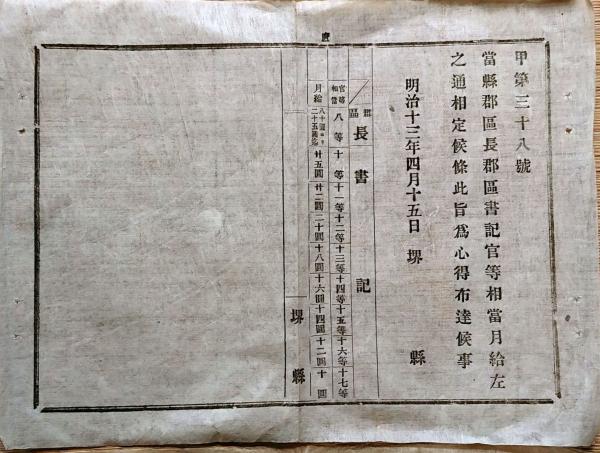 甲第三十八號
當縣郡區長郡區書記官等相當月給左
之通相定候條此旨爲心得布達候事
明治十三年四月十五日 堺 縣
郡區 長 書 記
官等相當 八等 十等 十一等 十二等 十三等 十四等 十五等 十六等 十七等
月給 八十圓ヨリ二十五圓迄 廿五圓 廿二圓 二十圓 十八圓 十六圓 十四圓 十二圓 十圓
堺 縣